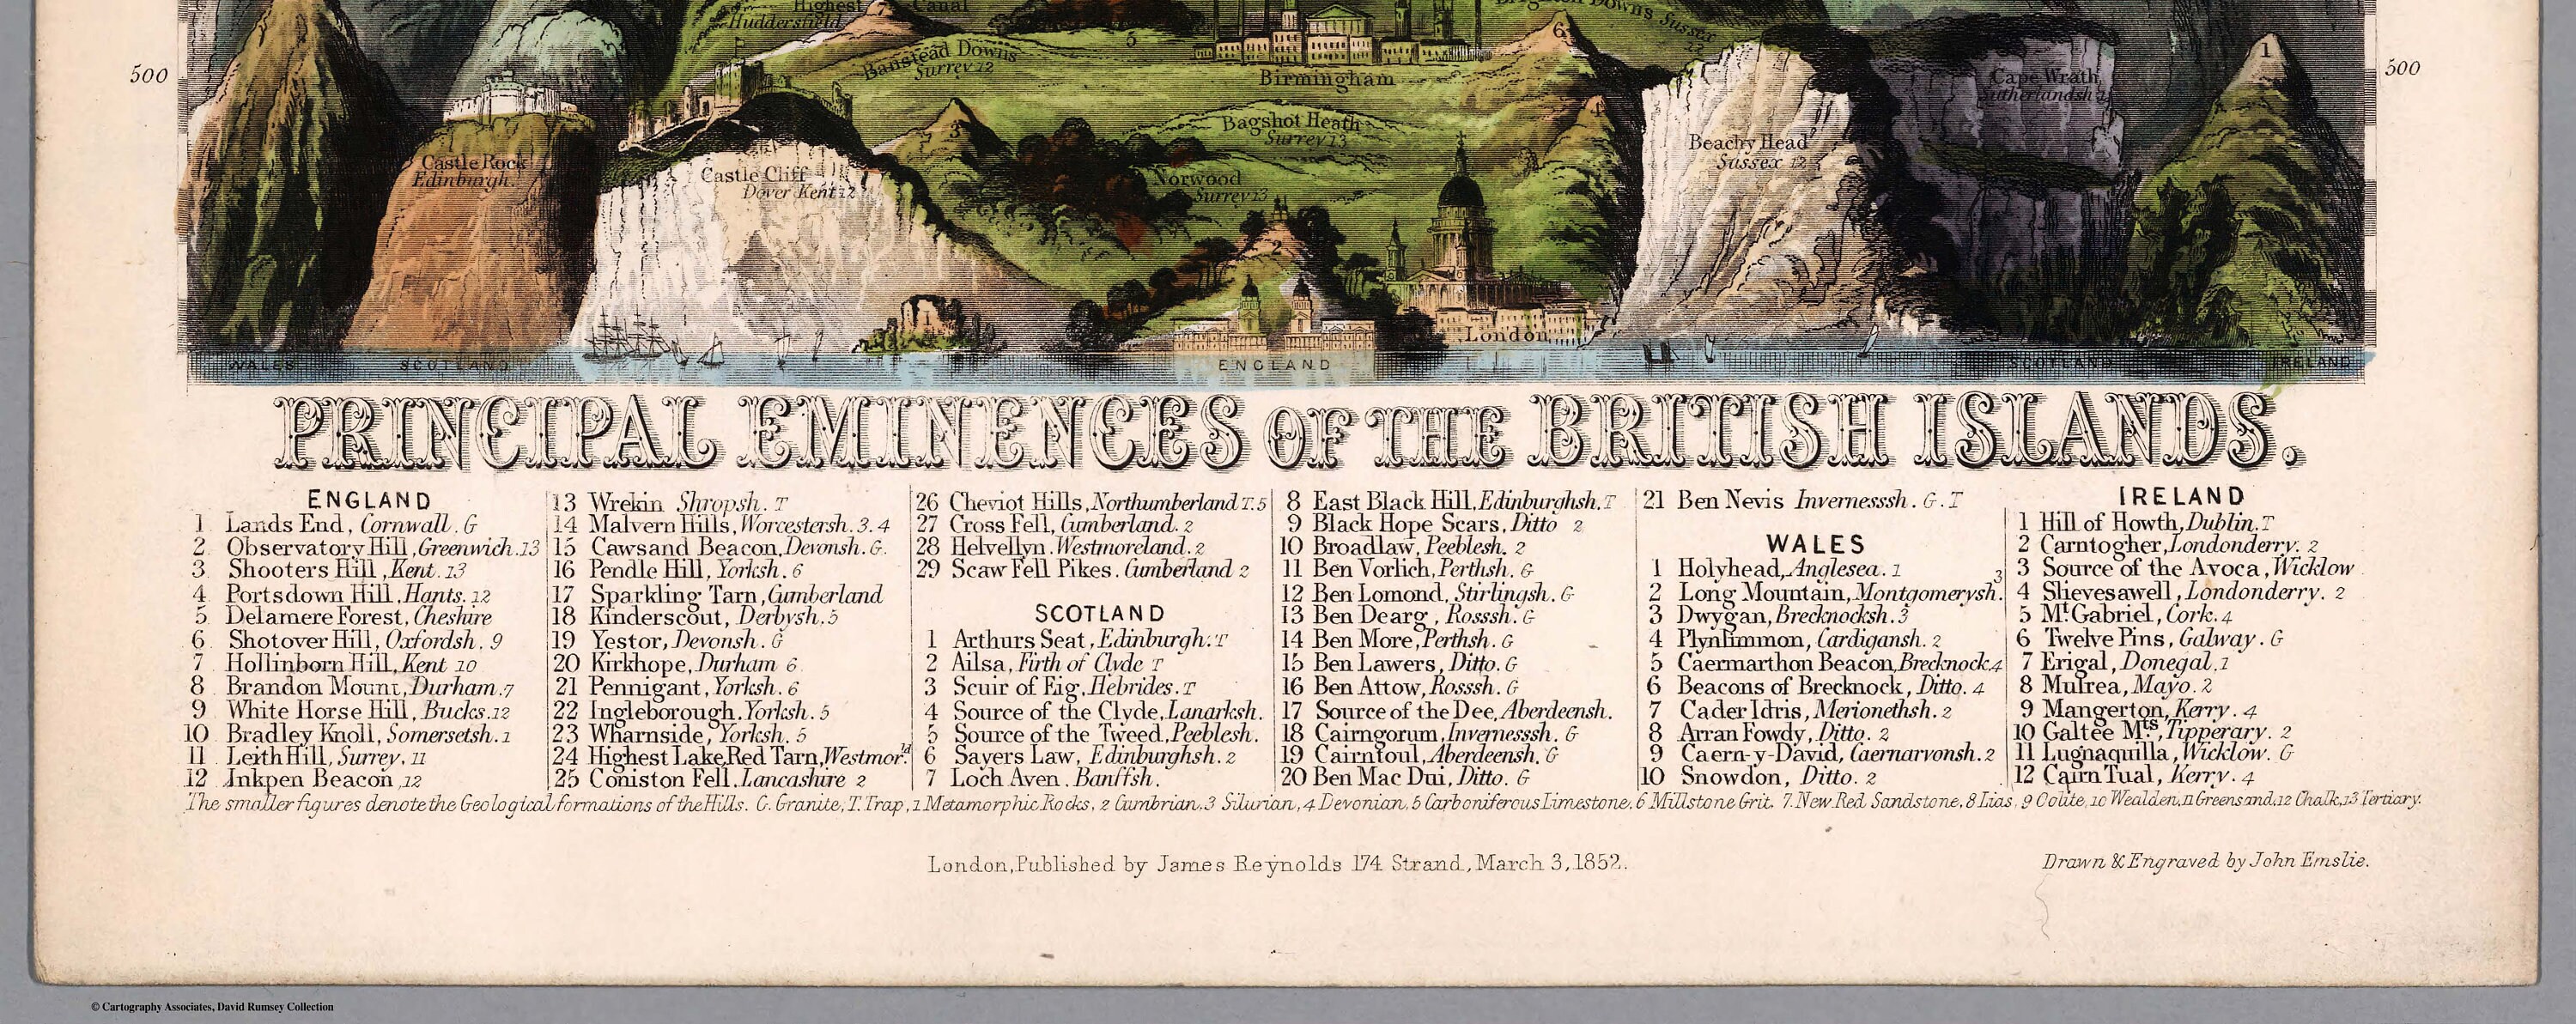 Highest Canal
Huddersfield
Brighton Downs Sussex
12
5
6
1
500
Banstead Downs
Surrey 12
Birmingham
500
Cape Wrath
Sutherlandsh
4
3
Bagshot Heath
Surrey 13
Castle Rock
Edinburgh.
Castle Cliff
Dover Kent 12
Norwood
Surrey 13
Beachy Head
Sussex 12
2
London
WALES SCOTLAND ENGLAND SCOTLAND IRELAND
PRINCIPAL EMINENCES OF THE BRITISH ISLANDS.
ENGLAND
1 Lands End, Cornwall. G
2 Observatory Hill, Greenwich. 13
3 Shooters Hill, Kent. 13
4 Portsdown Hill, Hants. 12
5 Delamere Forest, Cheshire
6 Shotover Hill, Oxfordsh. 9
7 Hollinborn Hill, Kent 10
8 Brandon Mount, Durham. 7
9 White Horse Hill, Bucks. 12
10 Bradley Knoll, Somersetsh. 1
11 Leith Hill, Surrey. 11
12 Inkpen Beacon, 12
13 Wrekin Shropsh. T
14 Malvern Hills, Worcestersh. 3. 4
15 Cawsand Beacon, Devonsh. G.
16 Pendle Hill, Yorksh. 6
17 Sparkling Tarn, Cumberland
18 Kinderscout, Derbysh. 5
19 Yestor, Devonsh. G
20 Kirkhope, Durham 6
21 Pennigant, Yorksh. 6
22 Ingleborough. Yorksh. 5
23 Wharnside, Yorksh. 5
24 Highest Lake, Red Tarn, Westmorld.
25 Coniston Fell. Lancashire 2
26 Cheviot Hills, Northumberland T. 5
27 Cross Fell, Cumberland. 2
28 Helvellyn. Westmoreland. 2
29 Scaw Fell Pikes. Cumberland 2
SCOTLAND
1 Arthurs Seat, Edinburgh. T
2 Ailsa, Firth of Clyde T
3 Scuir of Eig, Hebrides. T
4 Source of the Clyde, Lanarksh.
5 Source of the Tweed, Peeblesh.
6 Sayers Law, Edinburghsh. 2
7 Loch Aven. Banffsh.
8 East Black Hill, Edinburghsh. T
9 Black Hope Scars, Ditto 2
10 Broadlaw, Peeblesh. 2
11 Ben Vorlich, Perthsh. G
12 Ben Lomond, Stirlingsh. G
13 Ben Dearg, Rosssh. G
14 Ben More, Perthsh. G
15 Ben Lawers, Ditto. G
16 Ben Attow, Rosssh. G
17 Source of the Dee, Aberdeensh.
18 Cairngorum, Invernesssh. G
19 Cairntoul, Aberdeensh. G
20 Ben Mac Dui, Ditto. G
21 Ben Nevis Invernesssh. G. T
WALES
1 Holyhead, Anglesea. 1
2 Long Mountain, Montgomerysh. 3
3 Dwygan, Brecknocksh. 3
4 Plynlimmon, Cardigansh. 2
5 Caermarthon Beacon, Brecknock. 4
6 Beacons of Brecknock, Ditto. 4
7 Cader Idris, Merionethsh. 2
8 Arran Fowdy, Ditto. 2
9 Caern-y-David, Caernarvonsh. 2
10 Snowdon, Ditto. 2
IRELAND
1 Hill of Howth, Dublin. T
2 Carntogher, Londonderry. 2
3 Source of the Avoca, Wicklow
4 Slievesawell, Londonderry. 2
5 Mt. Gabriel, Cork. 4
6 Twelve Pins, Galway. G
7 Erigal, Donegal. 1
8 Mulrea, Mayo. 2
9 Mangerton, Kerry. 4
10 Galtee Mts., Tipperary. 2
11 Lugnaquilla, Wicklow. G
12 Cairn Tual, Kerry. 4
The smaller figures denote the Geological formations of the Hills. G. Granite, T. Trap, 1 Metamorphic Rocks, 2 Cumbrian, 3 Silurian, 4 Devonian, 5 Carboniferous Limestone, 6 Millstone Grit. 7. New Red Sandstone, 8 Lias, 9 Oolite, 10 Wealden, 11 Greensand, 12 Chalk, 13 Tertiary.
London, Published by James Reynolds 174 Strand, March 3, 1852.
Drawn & Engraved by John Emslie.
© Cartography Associates, David Rumsey Collection